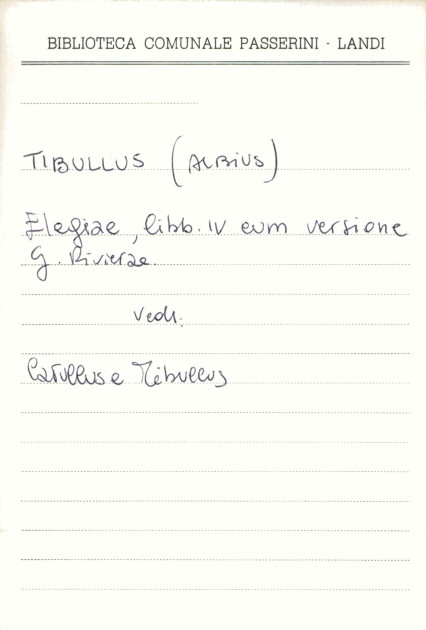 BIBLIOTECA COMUNALE PASSERINI - LANDI
TIBULLUS (ALBIUS)
Elegiae, libb. IV cum versione
G. Rivierae.
Vedi:
Catullus e Tibullus